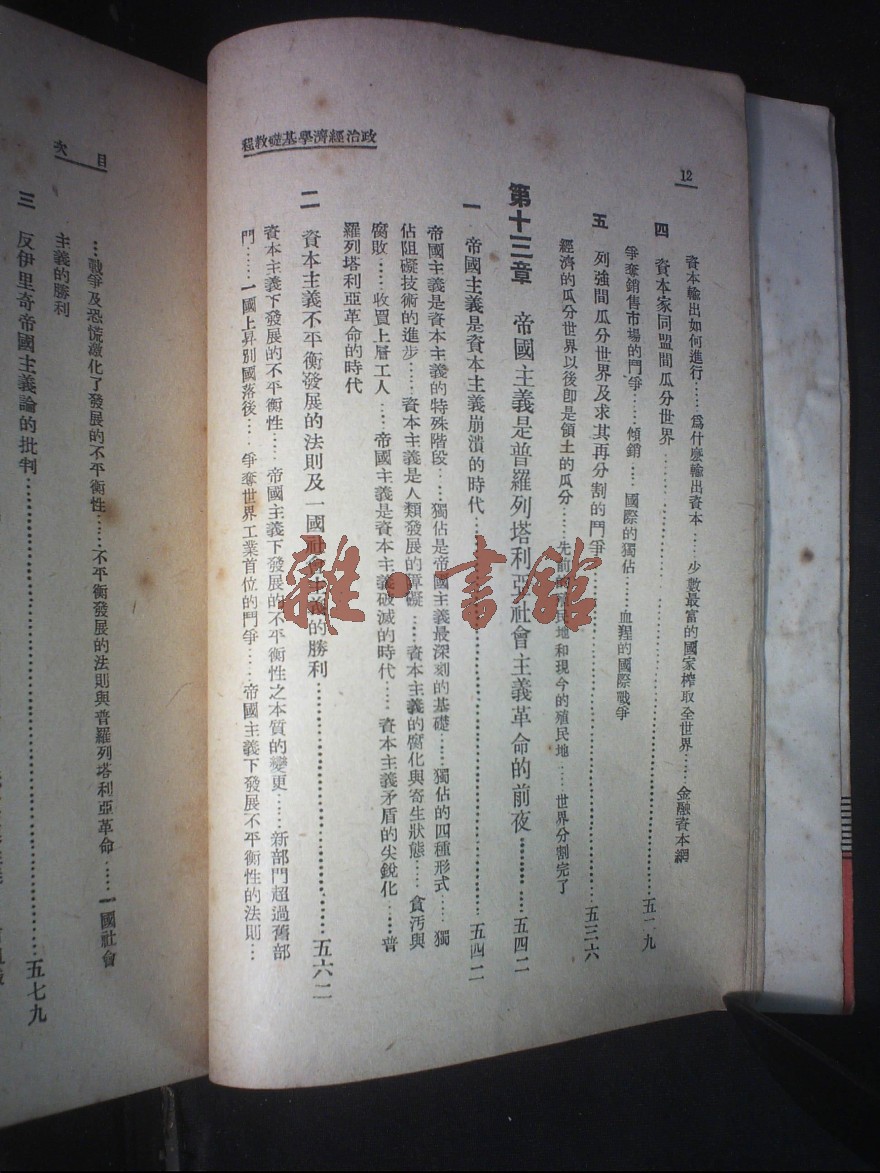 12
政治經濟學基礎教程
資本輸出如何進行……爲什麼輸出資本……少數最富的國家榨取全世界……金融資本網
四 資本家同盟間瓜分世界……五一九
爭奪銷售市場的鬥爭……傾銷……國際的獨佔……血猩的國際戰爭
五 列強間瓜分世界及求其再分割的鬥爭……五三六
經濟的瓜分世界以後卽是領土的瓜分……先前的殖民地和現今的殖民地……世界分割完了
第十三章 帝國主義是普羅列塔利亞社會主義革命的前夜……五四二
一 帝國主義是資本主義崩潰的時代……五四二
帝國主義是資本主義的特殊階段……獨佔是帝國主義最深刻的基礎……獨佔的四種形式……獨
佔阻礙技術的進步……資本主義是人類發展的障礙……資本主義的腐化與寄生狀態……貪汚與
腐敗……收買上層工人……帝國主義是資本主義破滅的時代……資本主義矛盾的尖銳化……普
羅列塔利亞革命的時代
二 資本主義不平衡發展的法則及一國社會主義的勝利……五六二
資本主義下發展的不平衡性……帝國主義下發展的不平衡性之本質的變更……新部門超過舊部
門……一國上昇別國落後……爭奪世界工業首位的鬥爭……帝國主義下發展不平衡性的法則…
目次
…戰爭及恐慌激化了發展的不平衡性……不平衡發展的法則與普羅列塔利亞革命……一國社會
主義的勝利
三 反伊里奇帝國主義論的批判……五七九
雜·書館